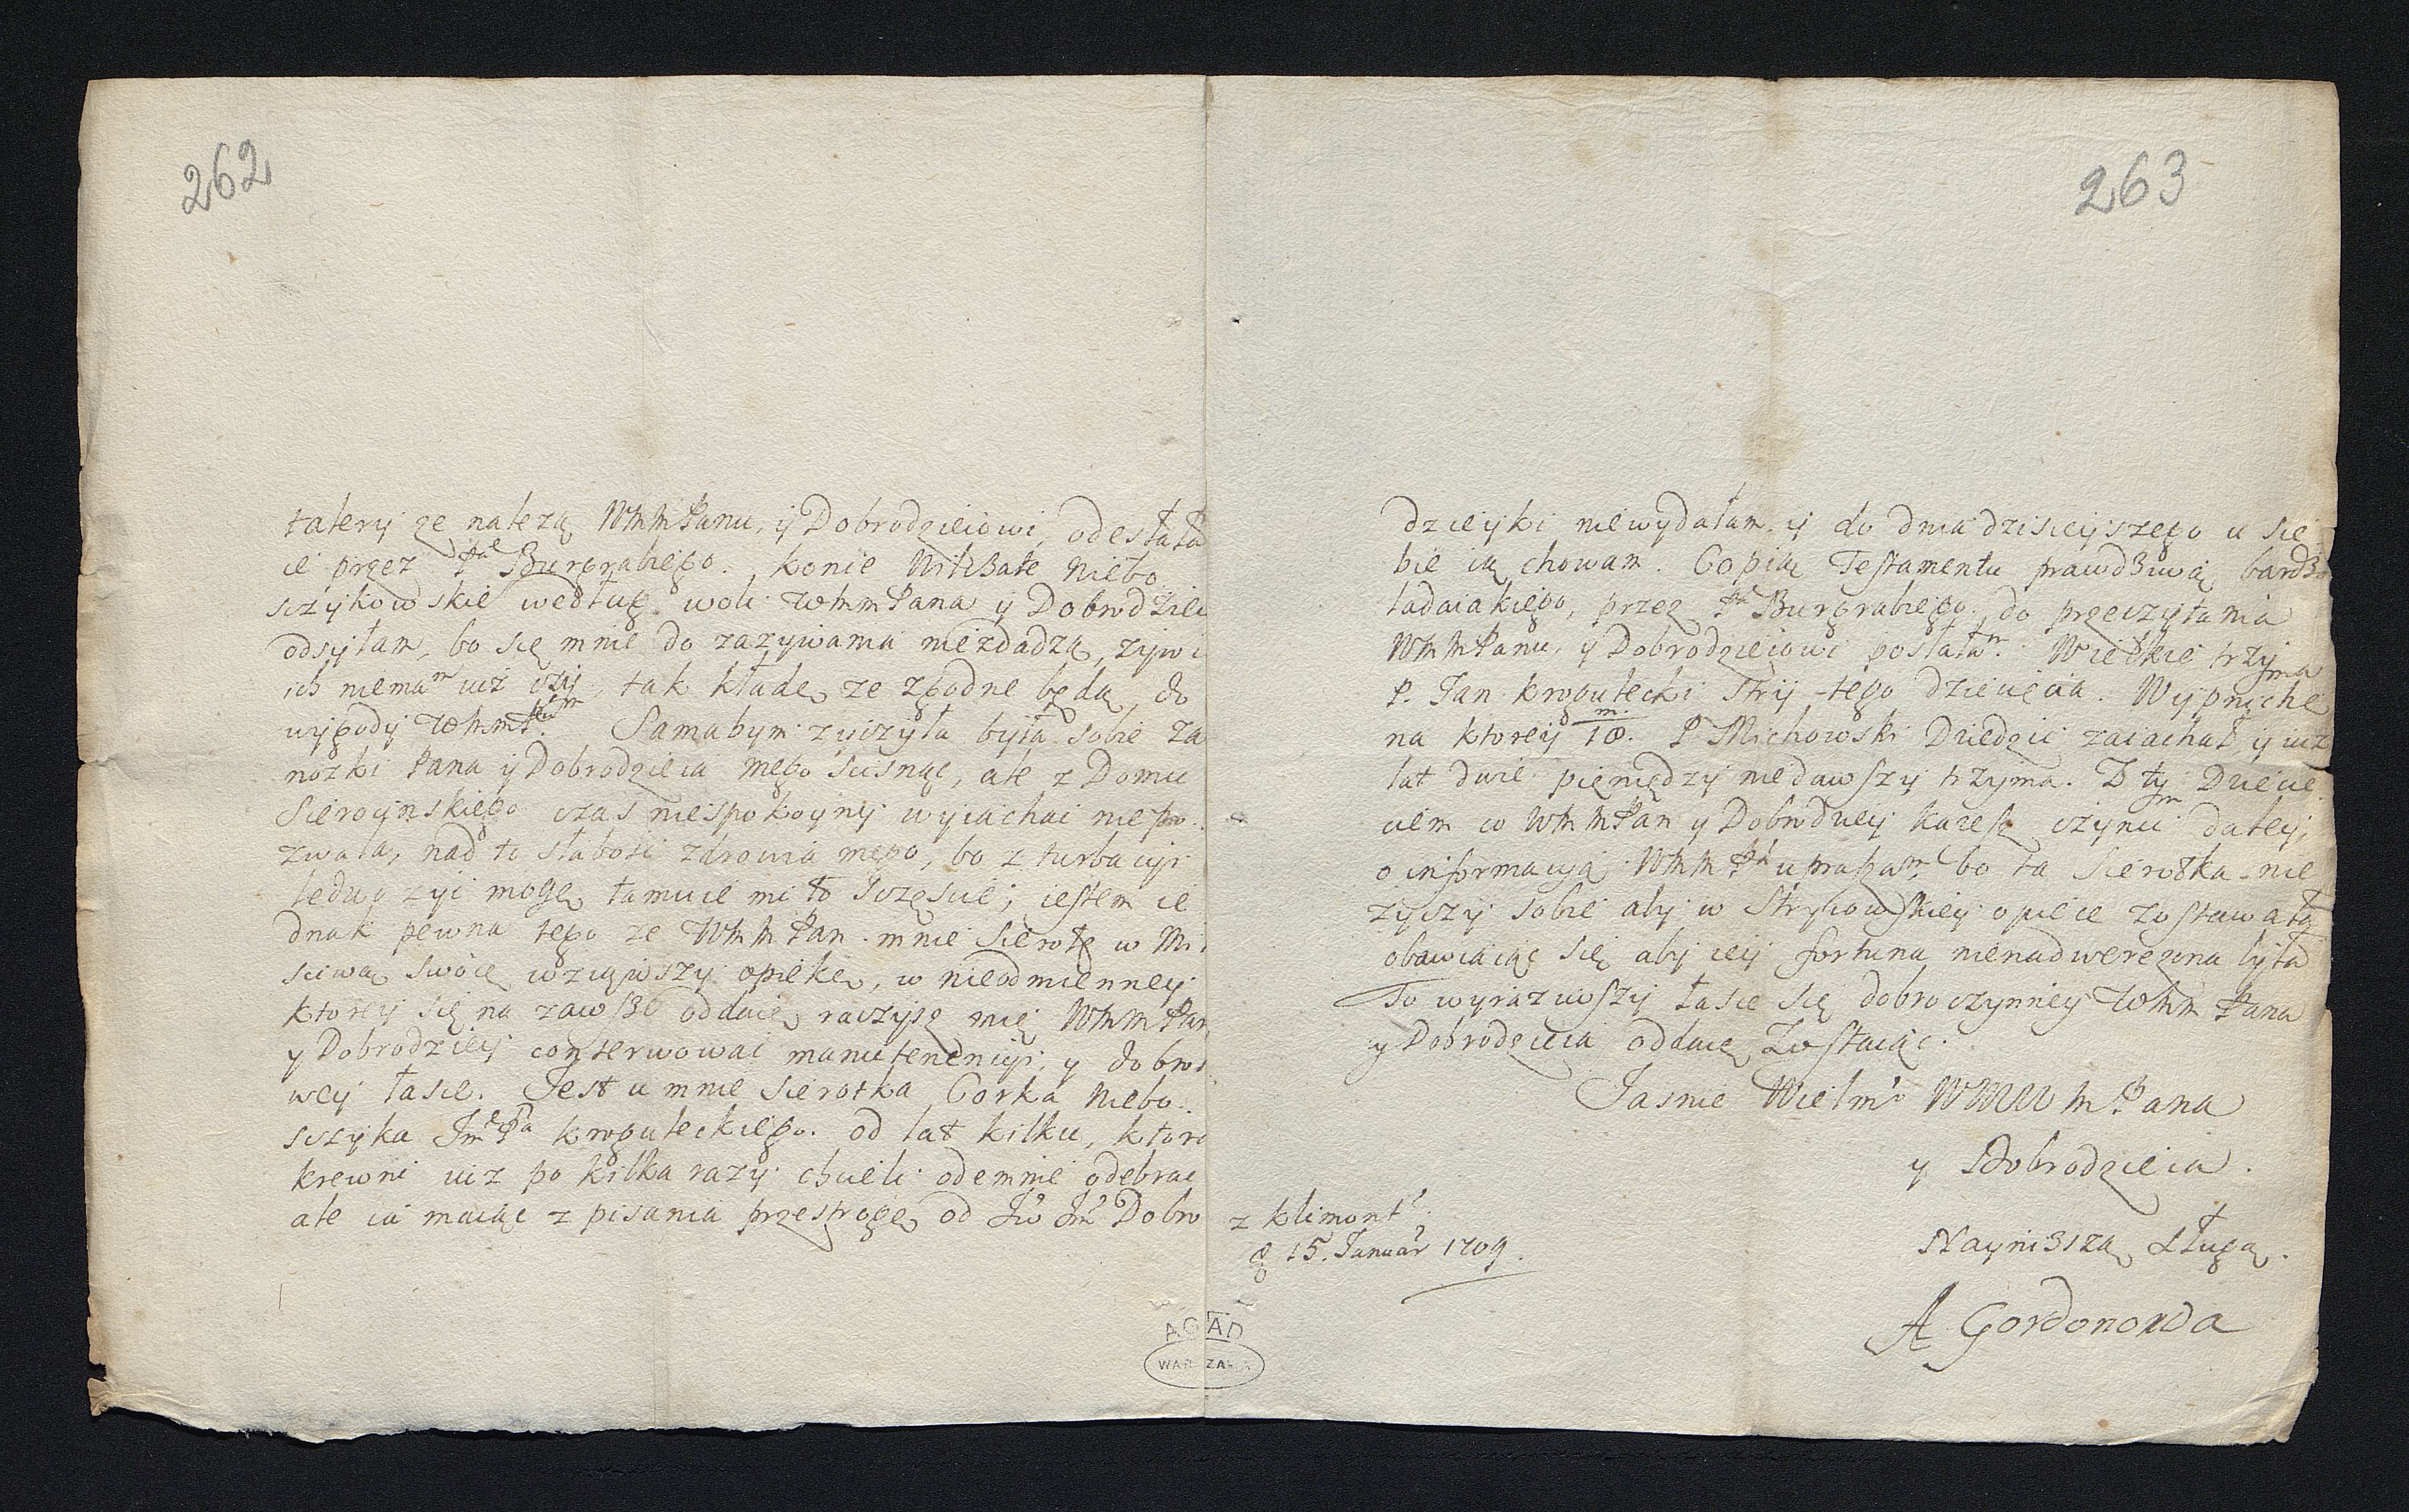 262
talery ze należą WMM Panu, y Dobrodzieiowi, odesłała
ie przez Pa Burgrabiego. konie Niebo
szczykowskie według woli WMM Pana y Dobrodzieia
odsyłam, bo się mnie do zazywania niezdadzą, zywi
ich niemam iuż czym, tak kładę ze zgodne będą do
wygody WMM Pana. Samabym zyczyła była sobie za
nozki Pana y Dobrodzieia mego scisnąc, ale z Domu
Sieroynskiego czas niespokoyny wyiachac nie po
zwala, nad to słabosc zdrowia mego, bo z turbacyi
ledwo zyc mogę tamuie mi to sczęscie; iestem ie
dnak pewna tego ze WMM Pan mnie Sierotę w Mi
sciwą swoię wziąwszy opiekę, w nieodmienney
ktorey się na zawsze oddaię, raczysz mię WMM Pan
y Dobrodziey conserwowac manutenencyi, y dobro
wey łasce. Jest u mnie Sierotka Corka Niebo
szczyka Jme Pa kroguleckiego. od lat kilku, ktorą
krewni iuz po kilka razy chcieli odemnie odebrac
ale ia maiąc z pisania przestrogę od Jw Jm Dobro
263
dzieyki niewydałam y do dnia dzisieyszego u sie
bie ią chowam. Copią Testamentu prawdziwą bardzo
ladaiakiego, przez Pa Burgrabiego do przeczytania
WMM Panu, y Dobrodzieiowi posłałam. Wieskie trzyma
P. Jan krogulecki stryi tego dziecięcia. Wyprichę
na ktorey 10 m. P Michowski Dziedzic zaiachał y iuz
lat dwie pieniędzy niedawszy trzyma. Z tym Dziecię
ciem co WMM Pan y Dobrodziey każesz czynic daley,
o informacyą WMM Pa upraszam. bo ta Sierotka nie
zyczy sobie aby w Stryiowskiey opiece zostawała
obawiaiąc się aby iey fortuna nienadwerezona była
To wyraziwszy łasce się dobroczynney WMM Pana
y Dobrodzieia oddaię Zostaiąc.
Jasnie Wielmo WMM M Pana
y Dobrodzieia.
Nayniższą sługą.
A Gordonowa
z klimont
d 15. Januar 1709.
AGAD
WARSZAWA